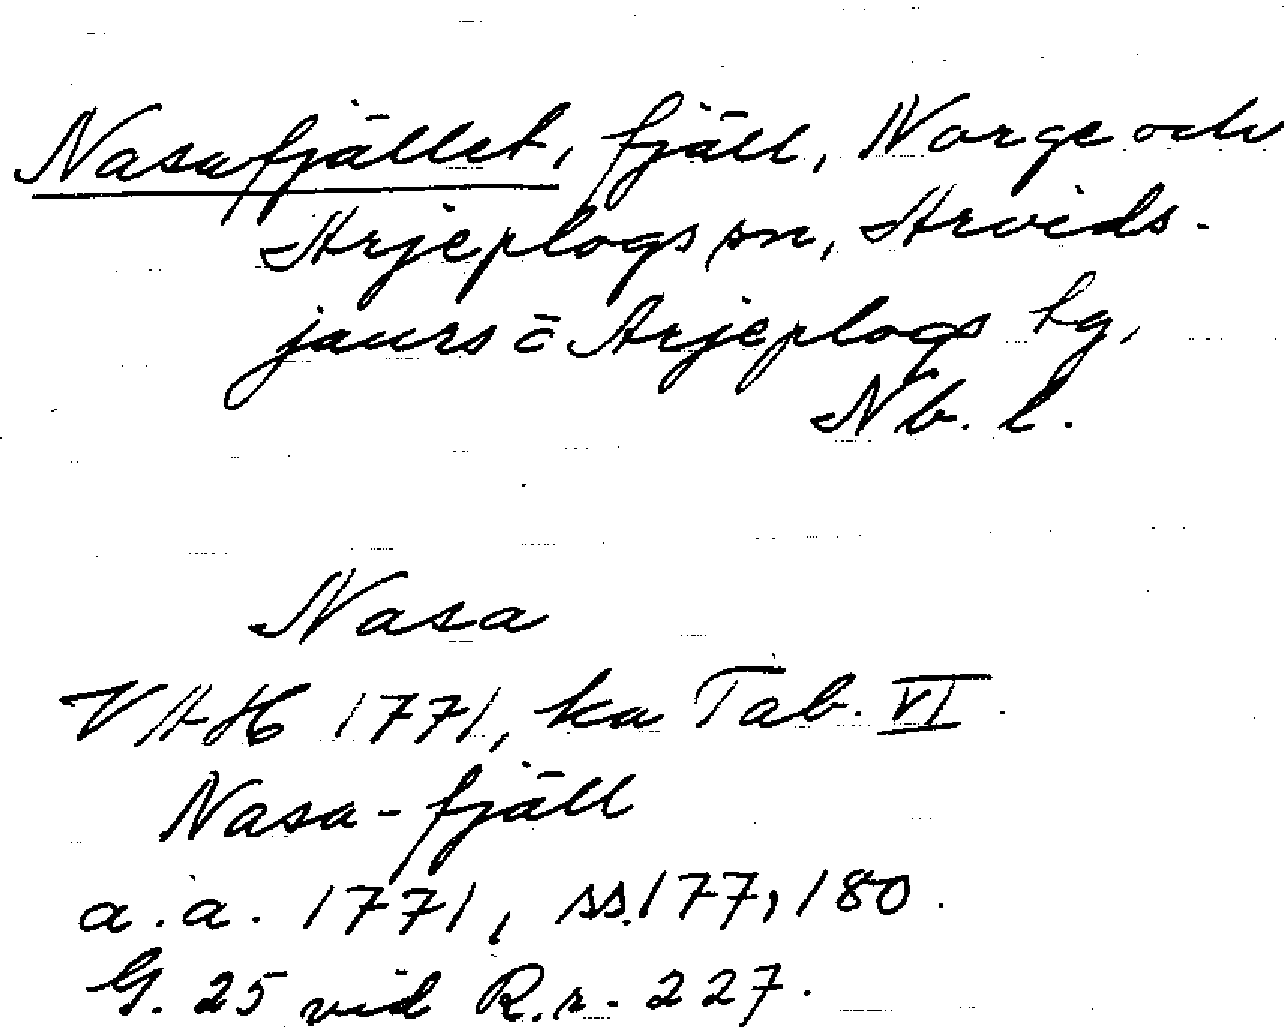 Nasafjället, fjäll, Norge och
Arjeplogs sn, Arvids-
jaurs o Arjeplogs tg,
Nb. l.
Nasa
VAH 1771, ka Tab. VI.
Nasa-fjäll
a.a. 1771, ss. 177, 180.
G. 25 vid R.r. 227.